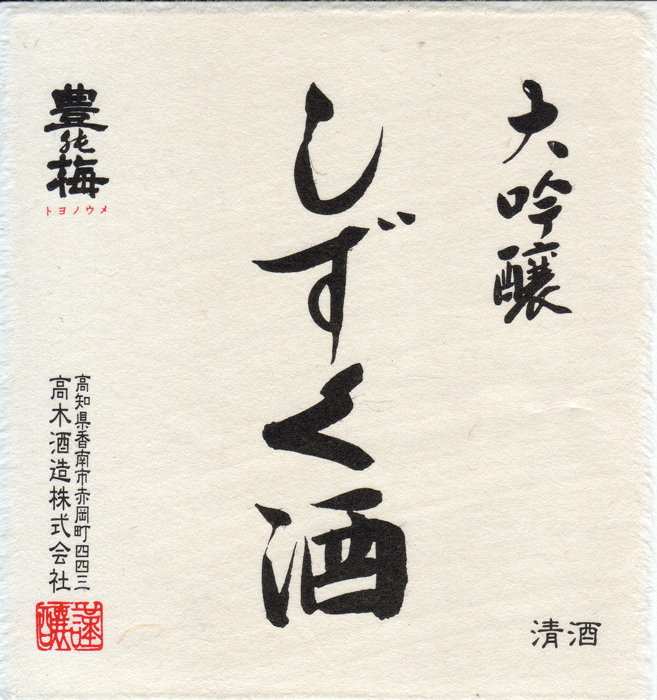 大吟醸
しずく酒
豊能梅
トヨノウメ
高知県香南市赤岡町四四三
高木酒造株式会社
清酒